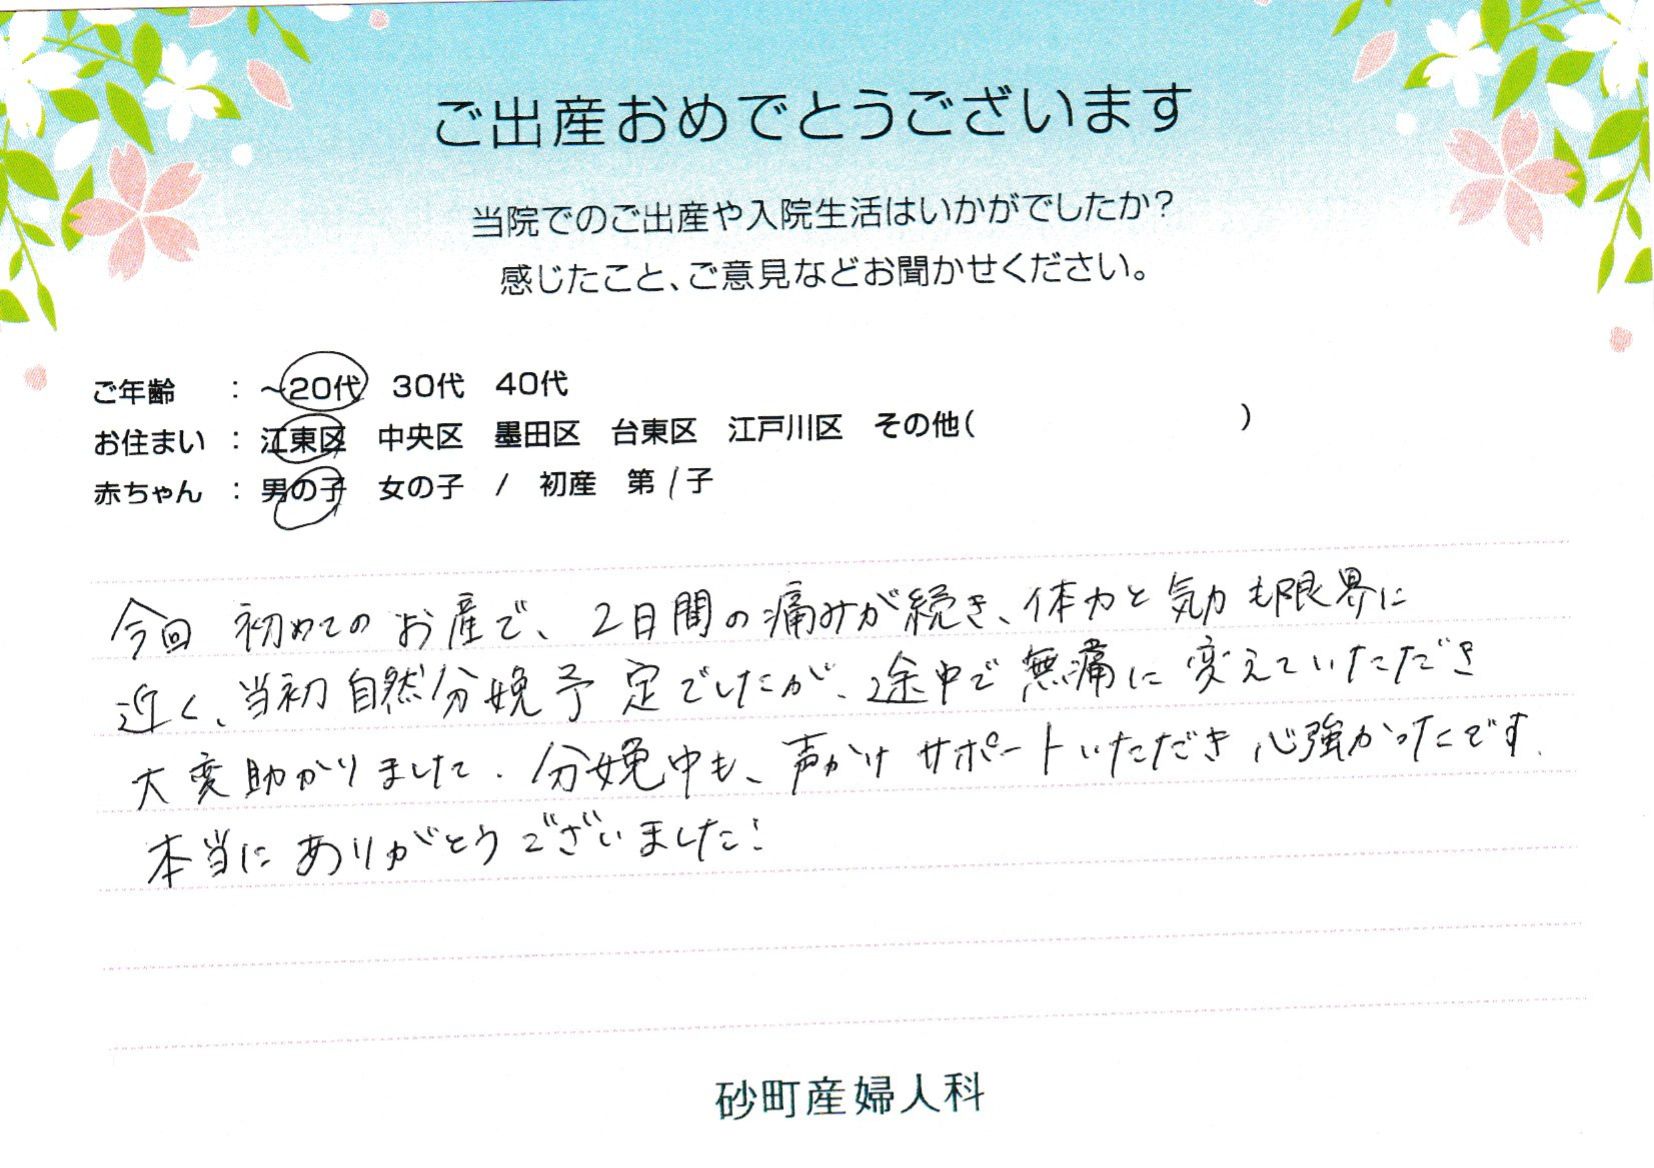 ご出産おめでとうございます
当院でのご出産や入院生活はいかがでしたか？
感じたこと、ご意見などお聞かせください。
ご年齢 ： ～20代 30代 40代
お住まい ： 江東区 中央区 墨田区 台東区 江戸川区 その他( )
赤ちゃん ： 男の子 女の子 / 初産 第1子
今回 初めてのお産で、2日間の痛みが続き、体力と気力も限界に
近く、当初自然分娩予定でしたが、途中で無痛に変えていただき
大変助かりました。分娩中も、声かけサポートいただき心強かったです。
本当にありがとうございました！
砂町産婦人科